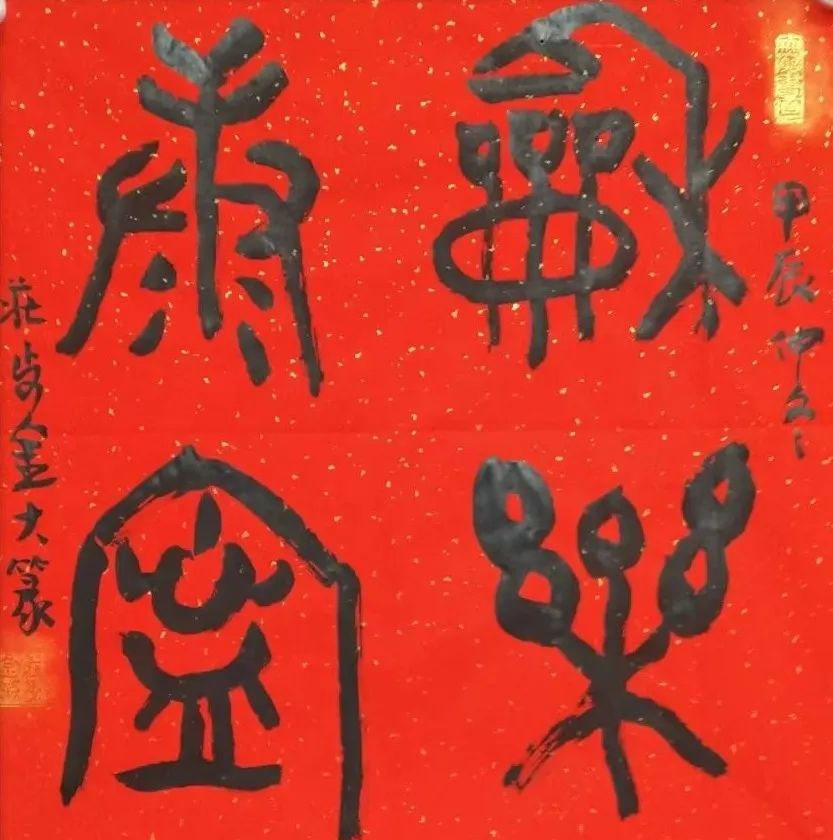 龢樂
康寧
甲辰仲冬
莊步金大篆